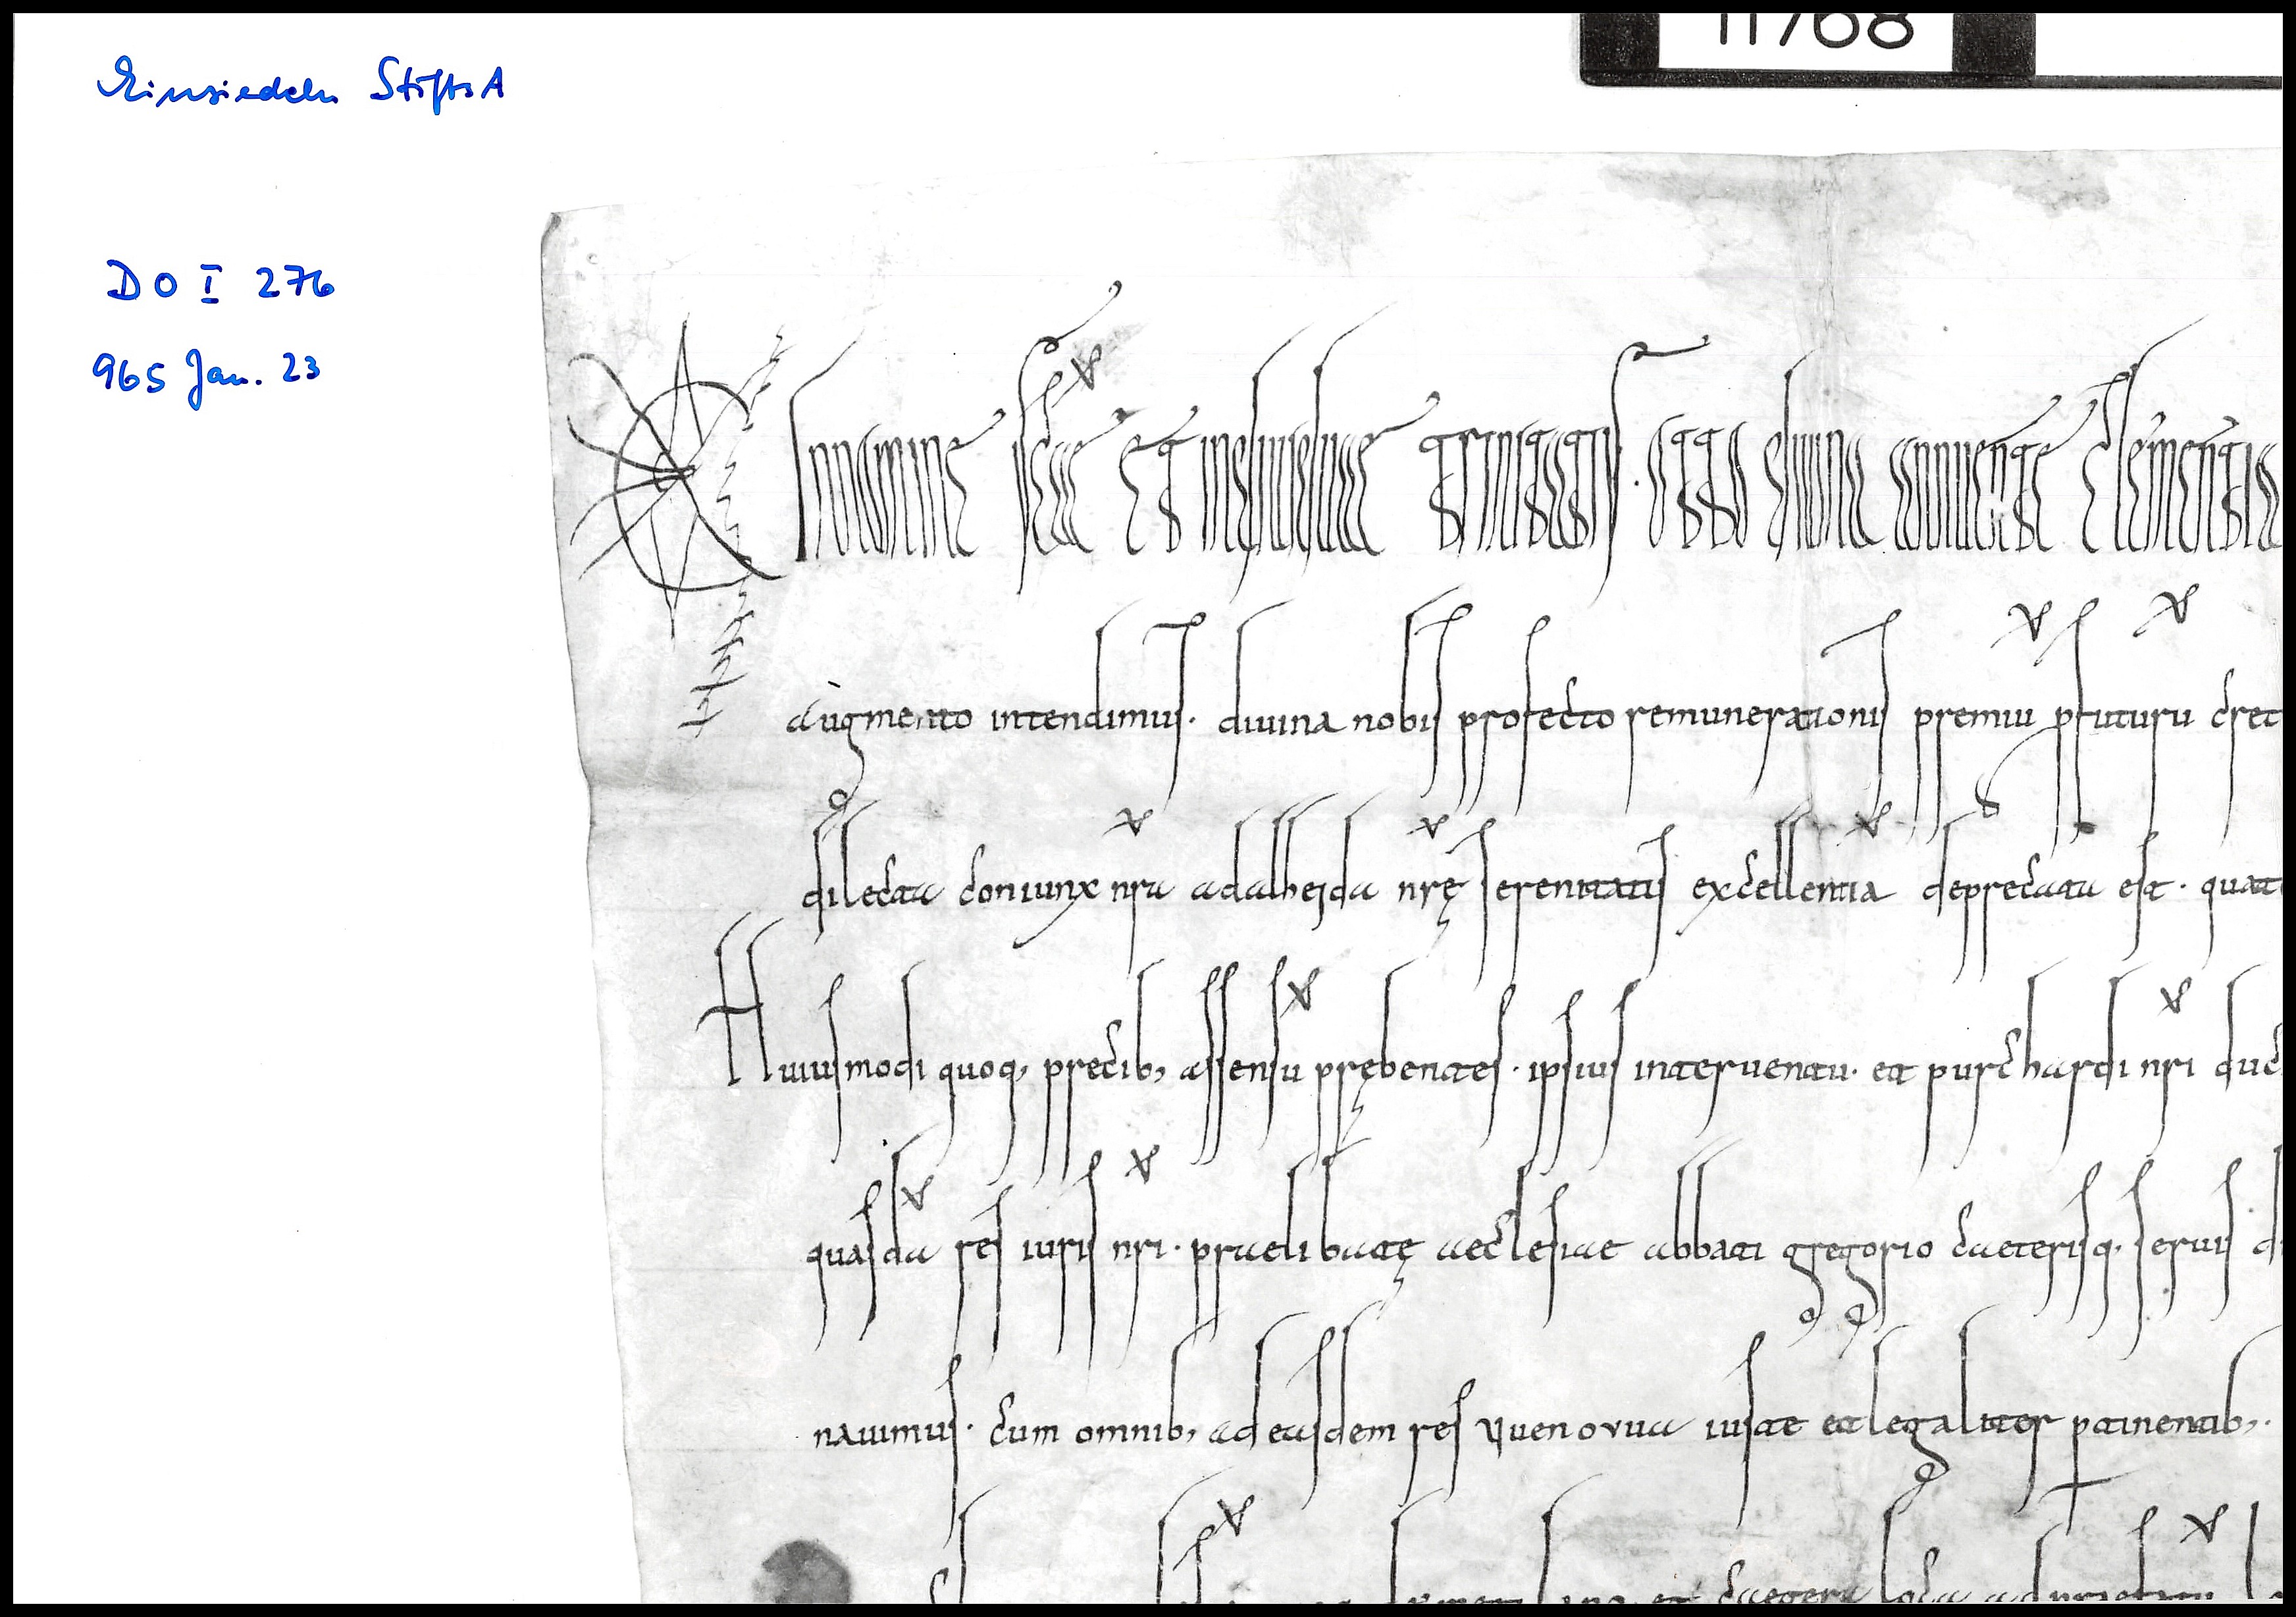 11768
Einsiedeln StiftsA
DO I 276
965 Jan. 23
In nomine scae et indiuiduae trinitatis. Otto diuina annuente clementia
augmento intendimus. diuina nobis profecto remunerationis premiu pfuturu
dilecta coniunx nra adalheida nrę serenitatis excellentia deprecata est.
Huiusmodi quoq, precib, assensu prębentes. ipsius interuentu. et purchardi nri
quasda res iuris nri. praelibatę aecclesiae abbati gregorio caeterisq, seruis
nauimus. cum omnib, ad easdem res quenouua iuste et legaliter ptinentib,.
et caetera loca